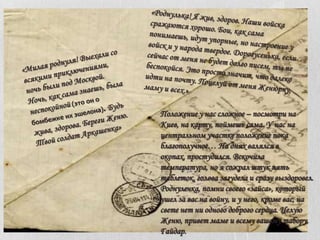 «Милая родная! Выехали со
всякими приключениями,
ночь были под Москвой.
Ночь, как сама знаешь, была
неспокойной (это он о
бомбежке их эшелона). Будь
жива, здорова. Береги Женю.
Твой солдат Аркашенька»
«Роднулька! Я жив, здоров. Наши войска
сражаются хорошо. Бои, как сама
понимаешь, идут упорные, но настроение у
войск и у народа твердое. Дорогусенька, если
сейчас от меня не будет долго писем, ты не
беспокойся. Это просто значит, что далеко
идти на почту. Поцелуй от меня Женюрку,
маму и всех.»
Положение у нас сложное – посмотри на
Киев, на карту, поймешь сама. У нас на
центральном участке положение пока
благополучное… На днях валялся в
окопах, простудился. Вскочила
температура, но я сожрал штук пять
таблеток, голова загудела и сразу выздоровел.
Роднуленька, помни своего «зайца», который
ушел за вас на войну, и у него, кроме вас, на
свете нет ни одного доброго сердца. Целую
Женю, привет маме и всему вашему табору.
Гайдар.